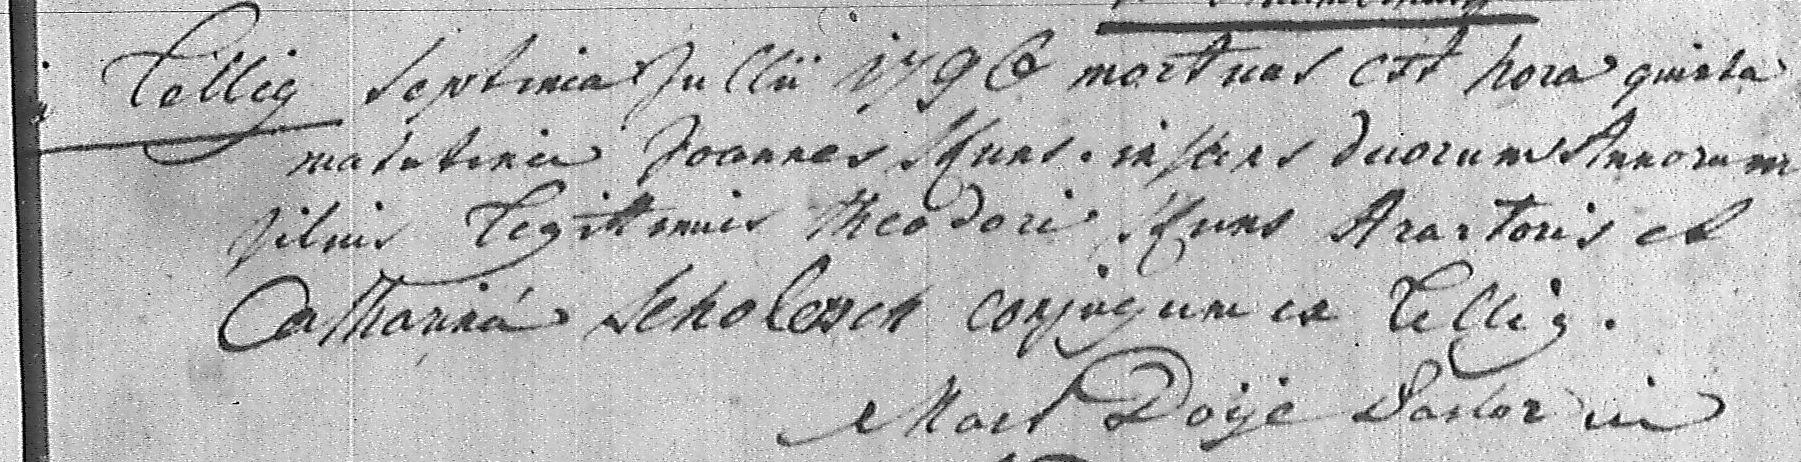 Tellig septima Jullii 1796 mortuus est hora quinta
matutina Joannes infans duorum Annorum
filius Legittimus Theodori Aratoris et
Catharina conjugum ex Tellig.
Mart Doye Pastor in